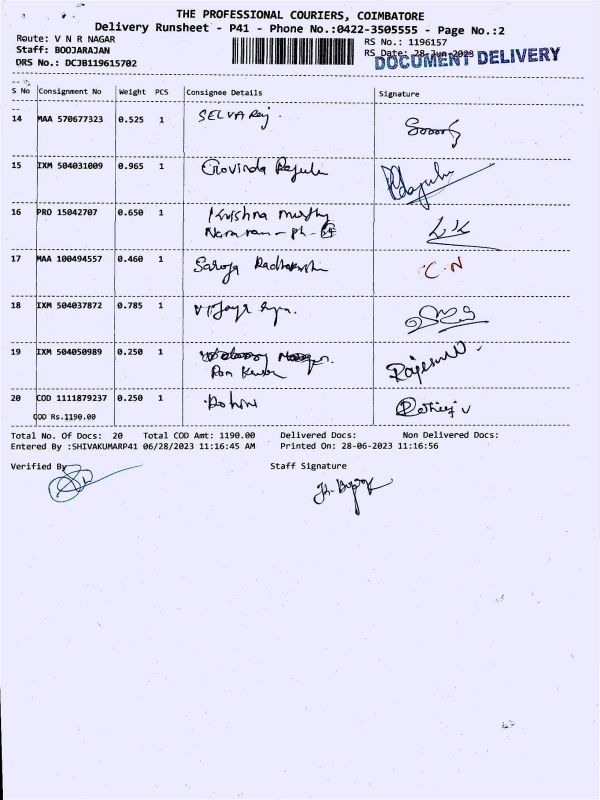 THE PROFESSIONAL COURIERS, COIMBATORE
Delivery Runsheet - P41 - Phone No.:0422-3505555 - Page No.:2
Route: V N R NAGAR
RS No.: 1196157
Staff: BOOJARAJAN
RS Date: 28-Jun-2023
DOCUMENT DELIVERY
DRS No.: DCJB119615702
S No Consignment No Weight PCS Consignee Details Signature
14 MAA 570677323 0.525 1 SELVA Raj.
15 IXM 504031009 0.965 1 Govinda Rajulu
16 PRO 15042707 0.650 1 Krishna murthy
17 MAA 100494557 0.460 1 Saroja Radhakrishn C.N
18 IXM 504037872 0.785 1
19 IXM 504050989 0.250 1
Ram Kumar
20 COD 1111879237 0.250 1
COD Rs.1190.00
Total No. Of Docs: 20 Total COD Amt: 1190.00 Delivered Docs: Non Delivered Docs:
Entered By :SHIVAKUMARP41 06/28/2023 11:16:45 AM Printed On: 28-06-2023 11:16:56
Verified By Staff Signature